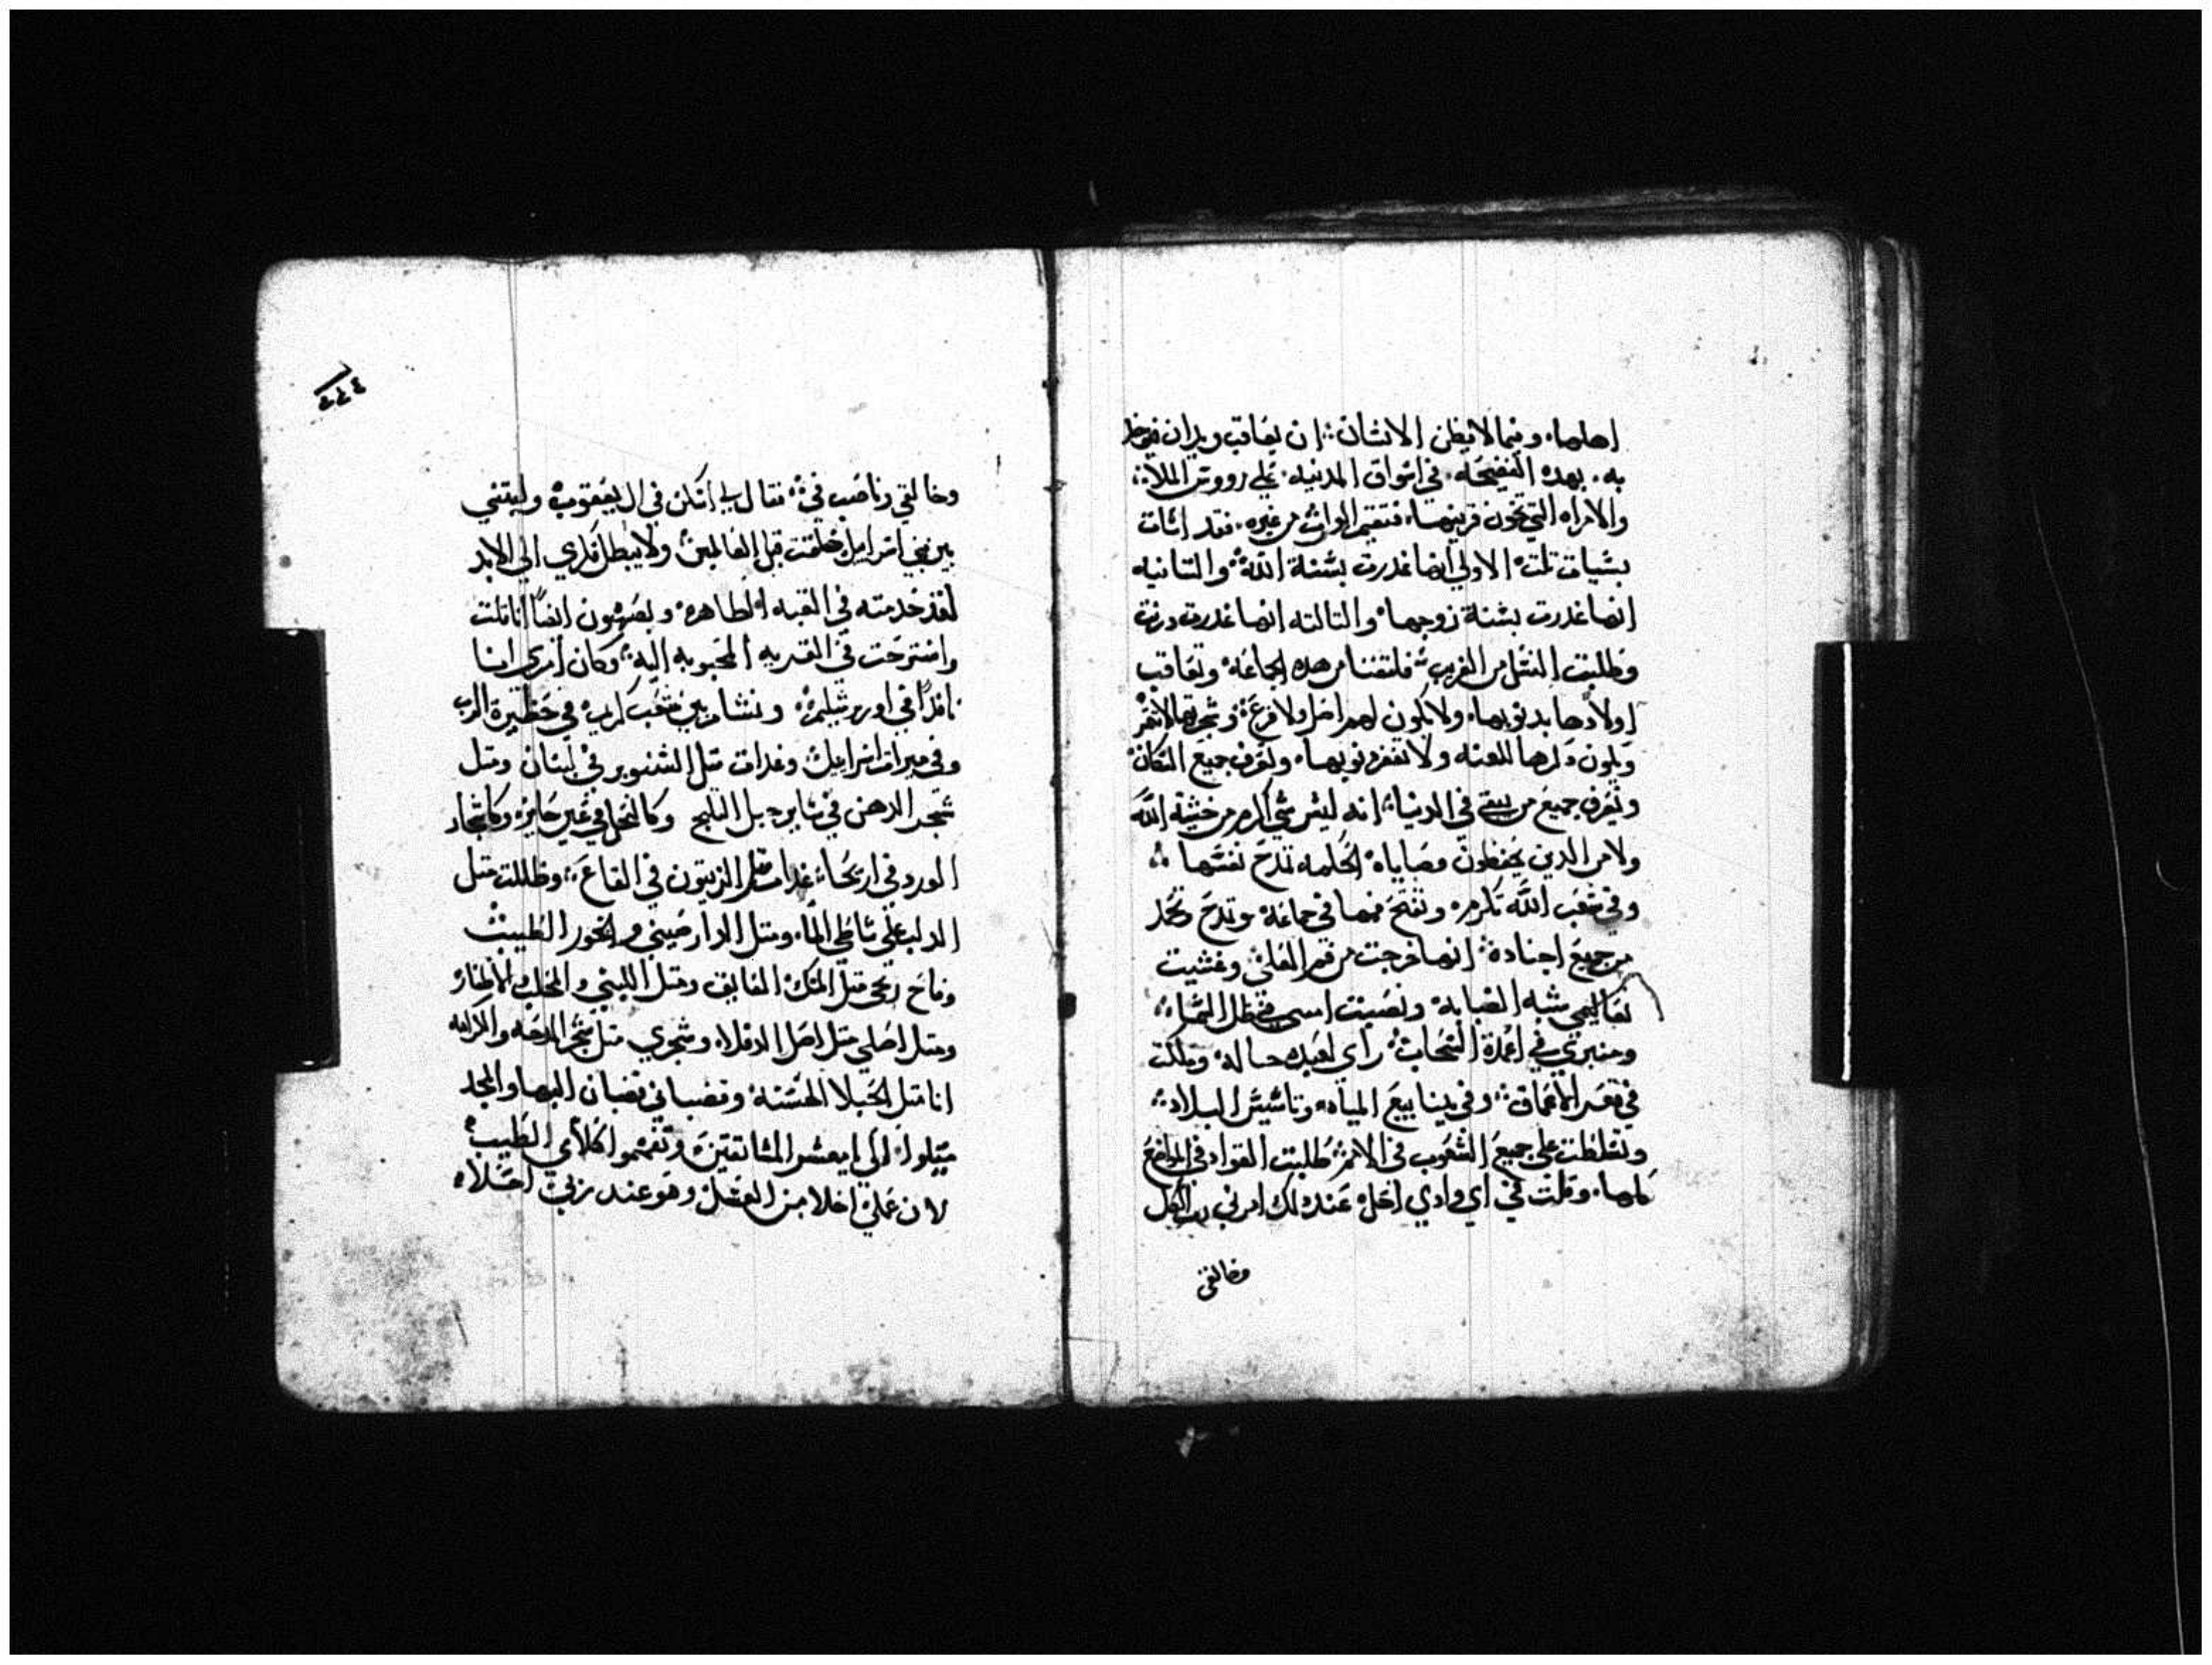 اهلها. وبينما لا يظن الانسان ان يعاقب ويدان في
به. بهده الفضيحه. في اسواق المدنيه. علي رووس الملا
والامراه التي تخون قرينها. فتقيم الوارث من غيره. فقد اتات
بسيات تلت الاولي انها غدرت بسنة الله والتانيه
انها غدرت بسنة زوجها والتالته انها غدرت وزنت
وطلبت النسل من الغريب فلتفنا من هده الجماعه وتعاقب
اولادها بدنوبها. ولا يكون لهم اصل ولا فرع
ويكون دكرها للعنه ولا تغفر دنوبها. وتعرف جميع السكان
وتعرف جميع من يبقي في الدنيا انه ليس شي اكرم من خشية الله
ولا من الدين يحفظون وصاياه الحكمه تمدح نفسها
وفي شعب الله تكرم وتفتح فمها في جماعة وتمدح وتمجد
من جميع اجناده انها خرجت من فم العلي وغشيت
تعاليمي شبه الضبابه ونصبت في ظل السماء
ومنبري في اعمدة السحاب راي لعبده حاله وملكت
في قعر الاعماق وفي ينابيع المياه وتاسيس البلاد
وتسلطت علي جميع الشعوب في الامم طلبت القواد في المواضع
كلها. وقلت في اي وادي احل عند دلك امرني رب الكل
وخالقي
وخالقي وناصب في فقال لي اسكن في ال يعقوب وليتني
بين بني اسراييل خلقت قبل العالمين ولا يبطل دكري الي الابد
لقد خدمته في القبه الطاهره وبصهيون ايضاً انا تلت
واسترحت في القريه المحبوبه اليه وكان امري ايضا
نافدًا في اورشليم ونشات بين شعب كريم في حظيرة الرب
وفي ميرات اسراييل وغدات متل الصنوبر في لبنان ومتل
شجر الدهن في ساير جبل التلج وكالنخل في عين حابر وكاشجار
الورد في اريحا غدات متل الزيتون في القاع وظللت متل
الدلب علي شاطي الما. ومتل الدارصيني والبخور الطيب
وفاح ريحي متل المسك الفايق ومتل اللبني والمحلب والاظفار
ومتل اصلي متل اصل الدفلاه وشجري متل شجر المدحه والكرامه
انا متل الحبلا الحسنه وقضباني قضبان البها والمجد
ميلوا الي يا معشر المشتاقين وتفهموا كلامي الطيب
لان عملي احلا من العسل وهو عند ربي احلاه